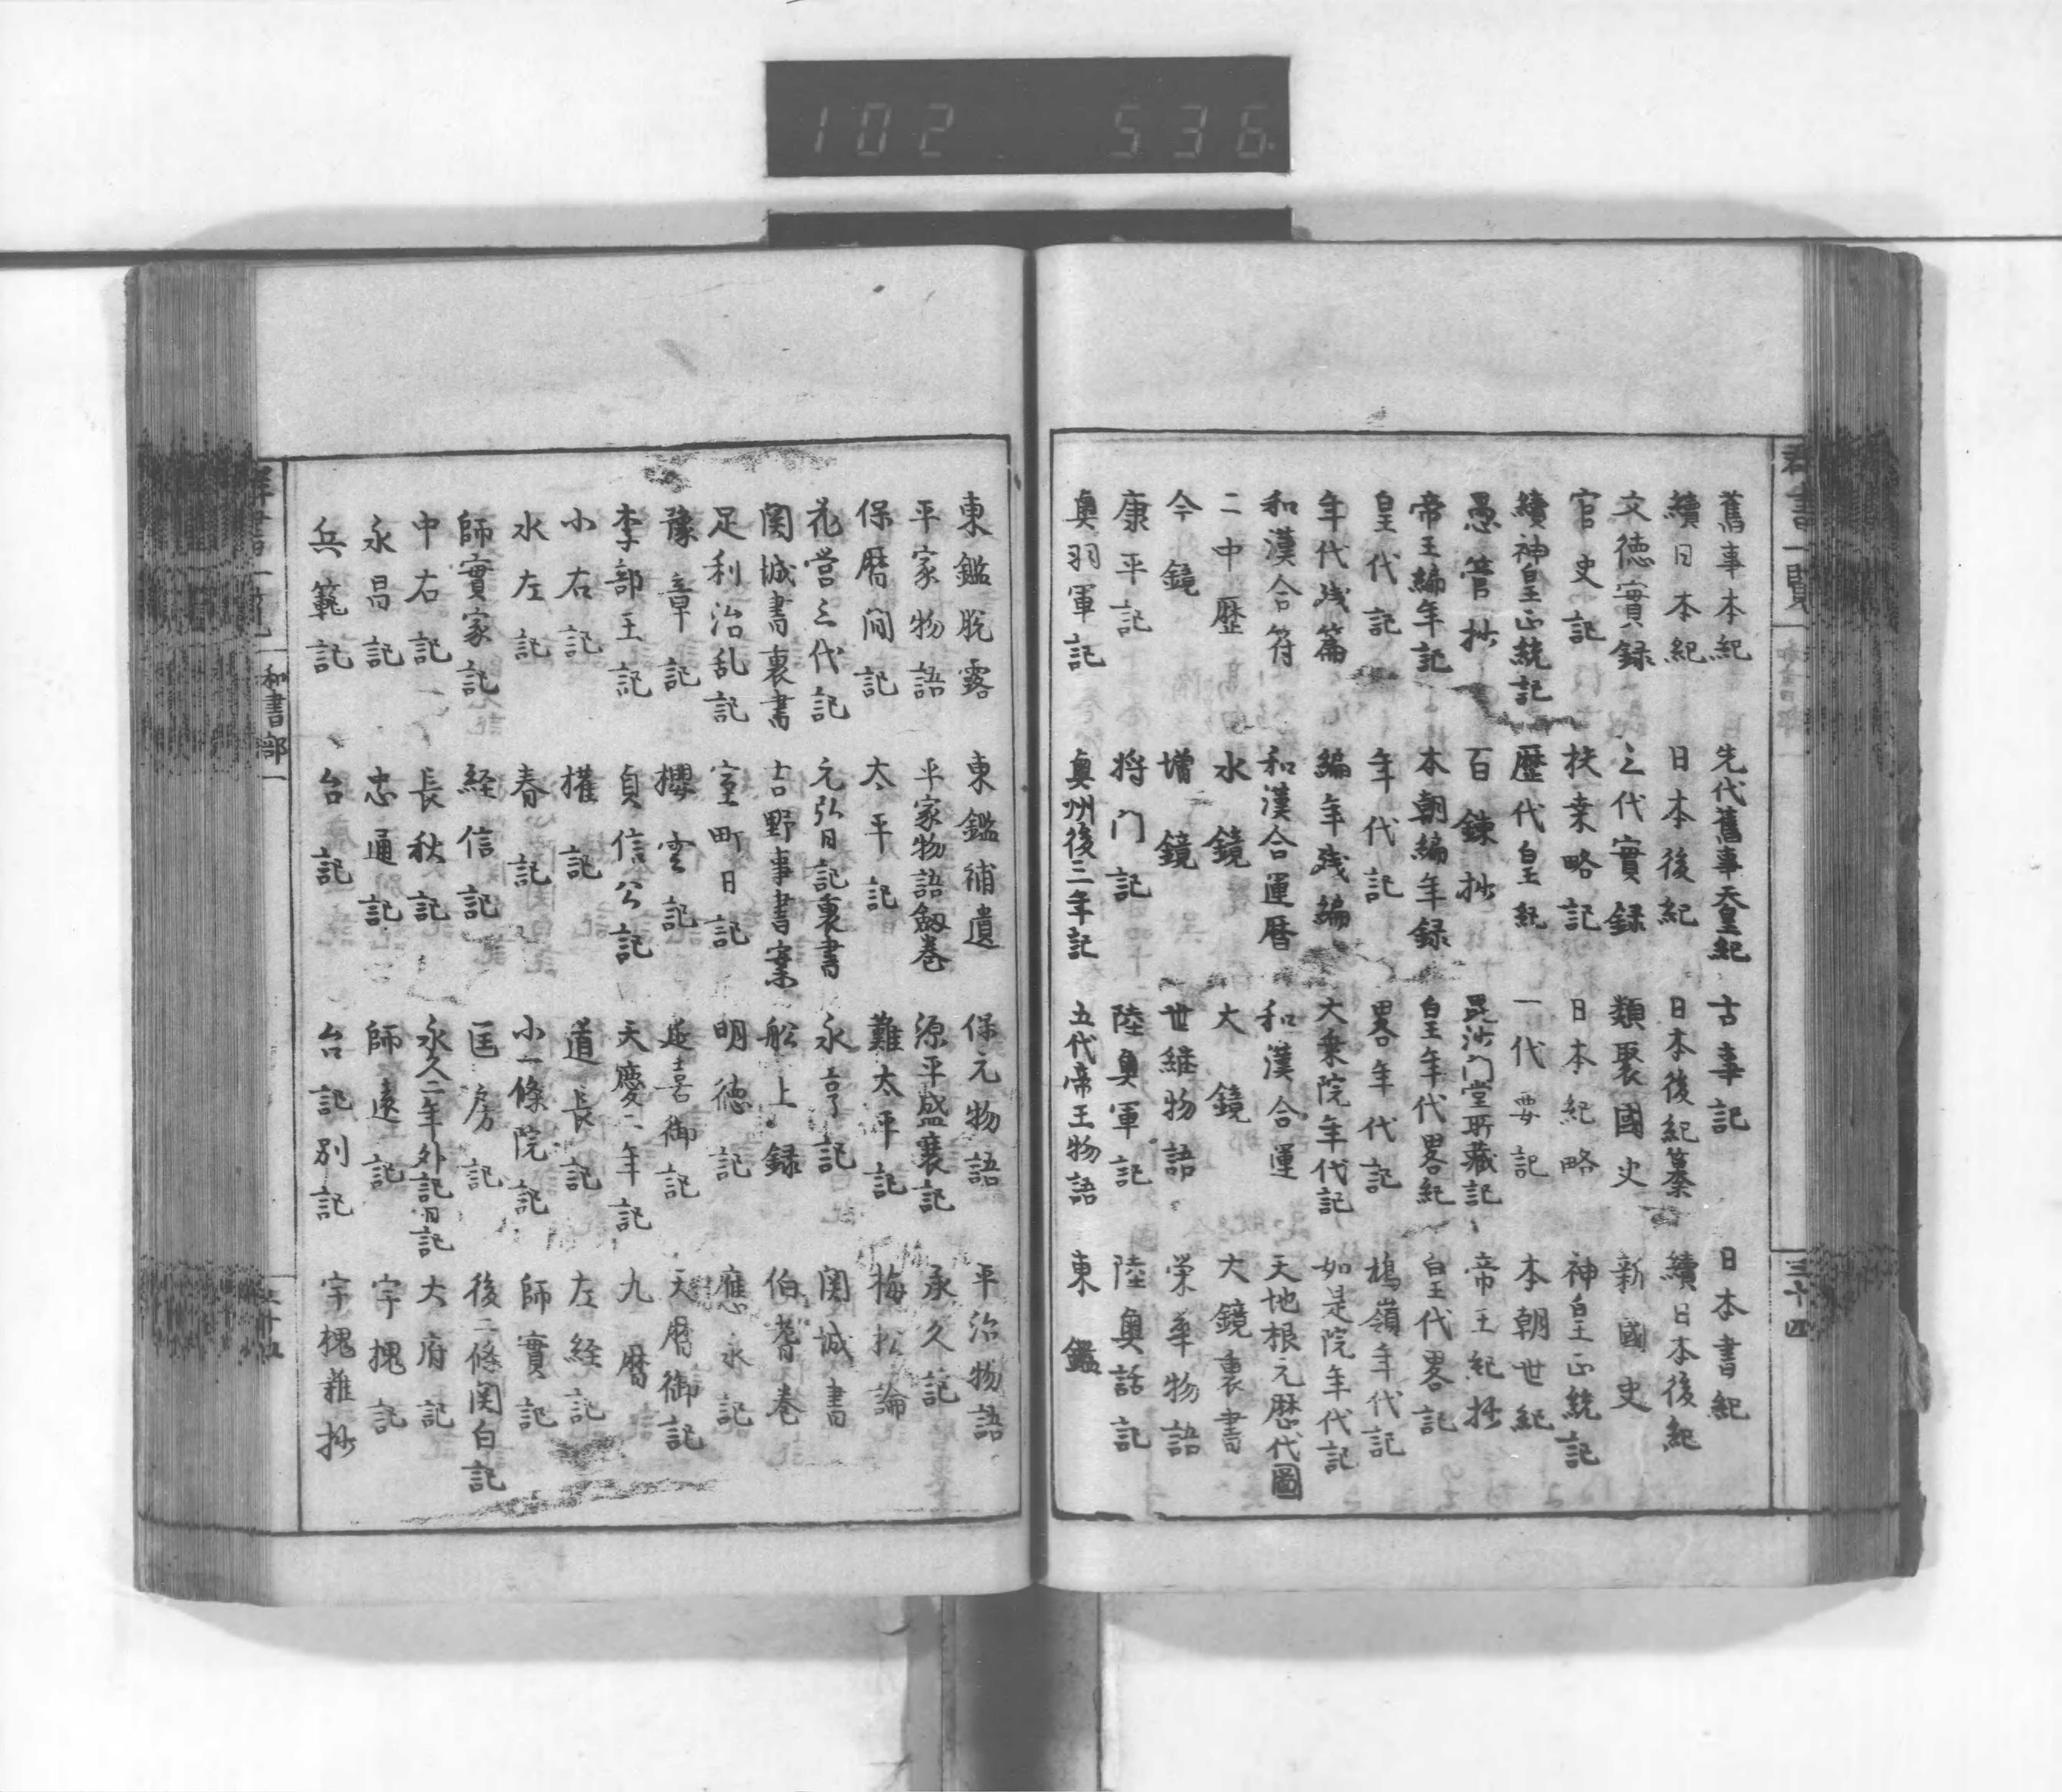 102 536
群書一覧
三十四
舊事本紀 先代舊事天皇紀 古事記 日本書紀
續日本紀 日本後紀 日本後紀纂 續日本後紀
文徳實録 三代實録 類聚國史 新國史
官史記 扶桒略記 日本紀略 神皇正統記
續神皇正統記 歴代皇紀 一代要記 本朝世紀
愚管抄 百錬抄 毘沙门堂所藏記 帝王紀抄
帝王編年記 本朝編年録 皇年代畧紀 皇代畧記
皇代記 年代記 畧年代記 鳩嶺年代記
年代残篇 編年残編 大乗院年代記 如是院年代記
和漢合符 和漢合運暦 和漢合運 天地根元歴代圖
二中歴 水鏡 大鏡 大鏡裏書
今鏡 増鏡 世継物語 栄華物語
康平記 将门記 陸奥軍記 陸奥話記
奥羽軍記 奥州後三年記 五代帝王物語 東鑑
東鑑脱露 東鑑補遺 保元物語 平治物語
平家物語 平家物語劔巻 源平盛衰記 承久記
保暦间記 太平記 難太平記 梅松論
花営三代記 元弘日記裏書 永享記 関城書
関城書裏書 吉野事書案 舩上録 伯耆巻
足利治乱記 室町日記 明徳記 應永記
豫章記 櫻雲記 延喜御記 天暦御記
李部王記 貞信公記 天慶二年記 九暦
小右記 權記 道長記 左経記
水左記 春記 小一條院記 師實記
師實家記 経信記 匡房記 後二條関白記
中右記 長秋記 永久二年外記日記 大府記
永昌記 忠通記 師遠記 宇槐記
兵範記 台記 台記別記 宇槐雜抄
和書部